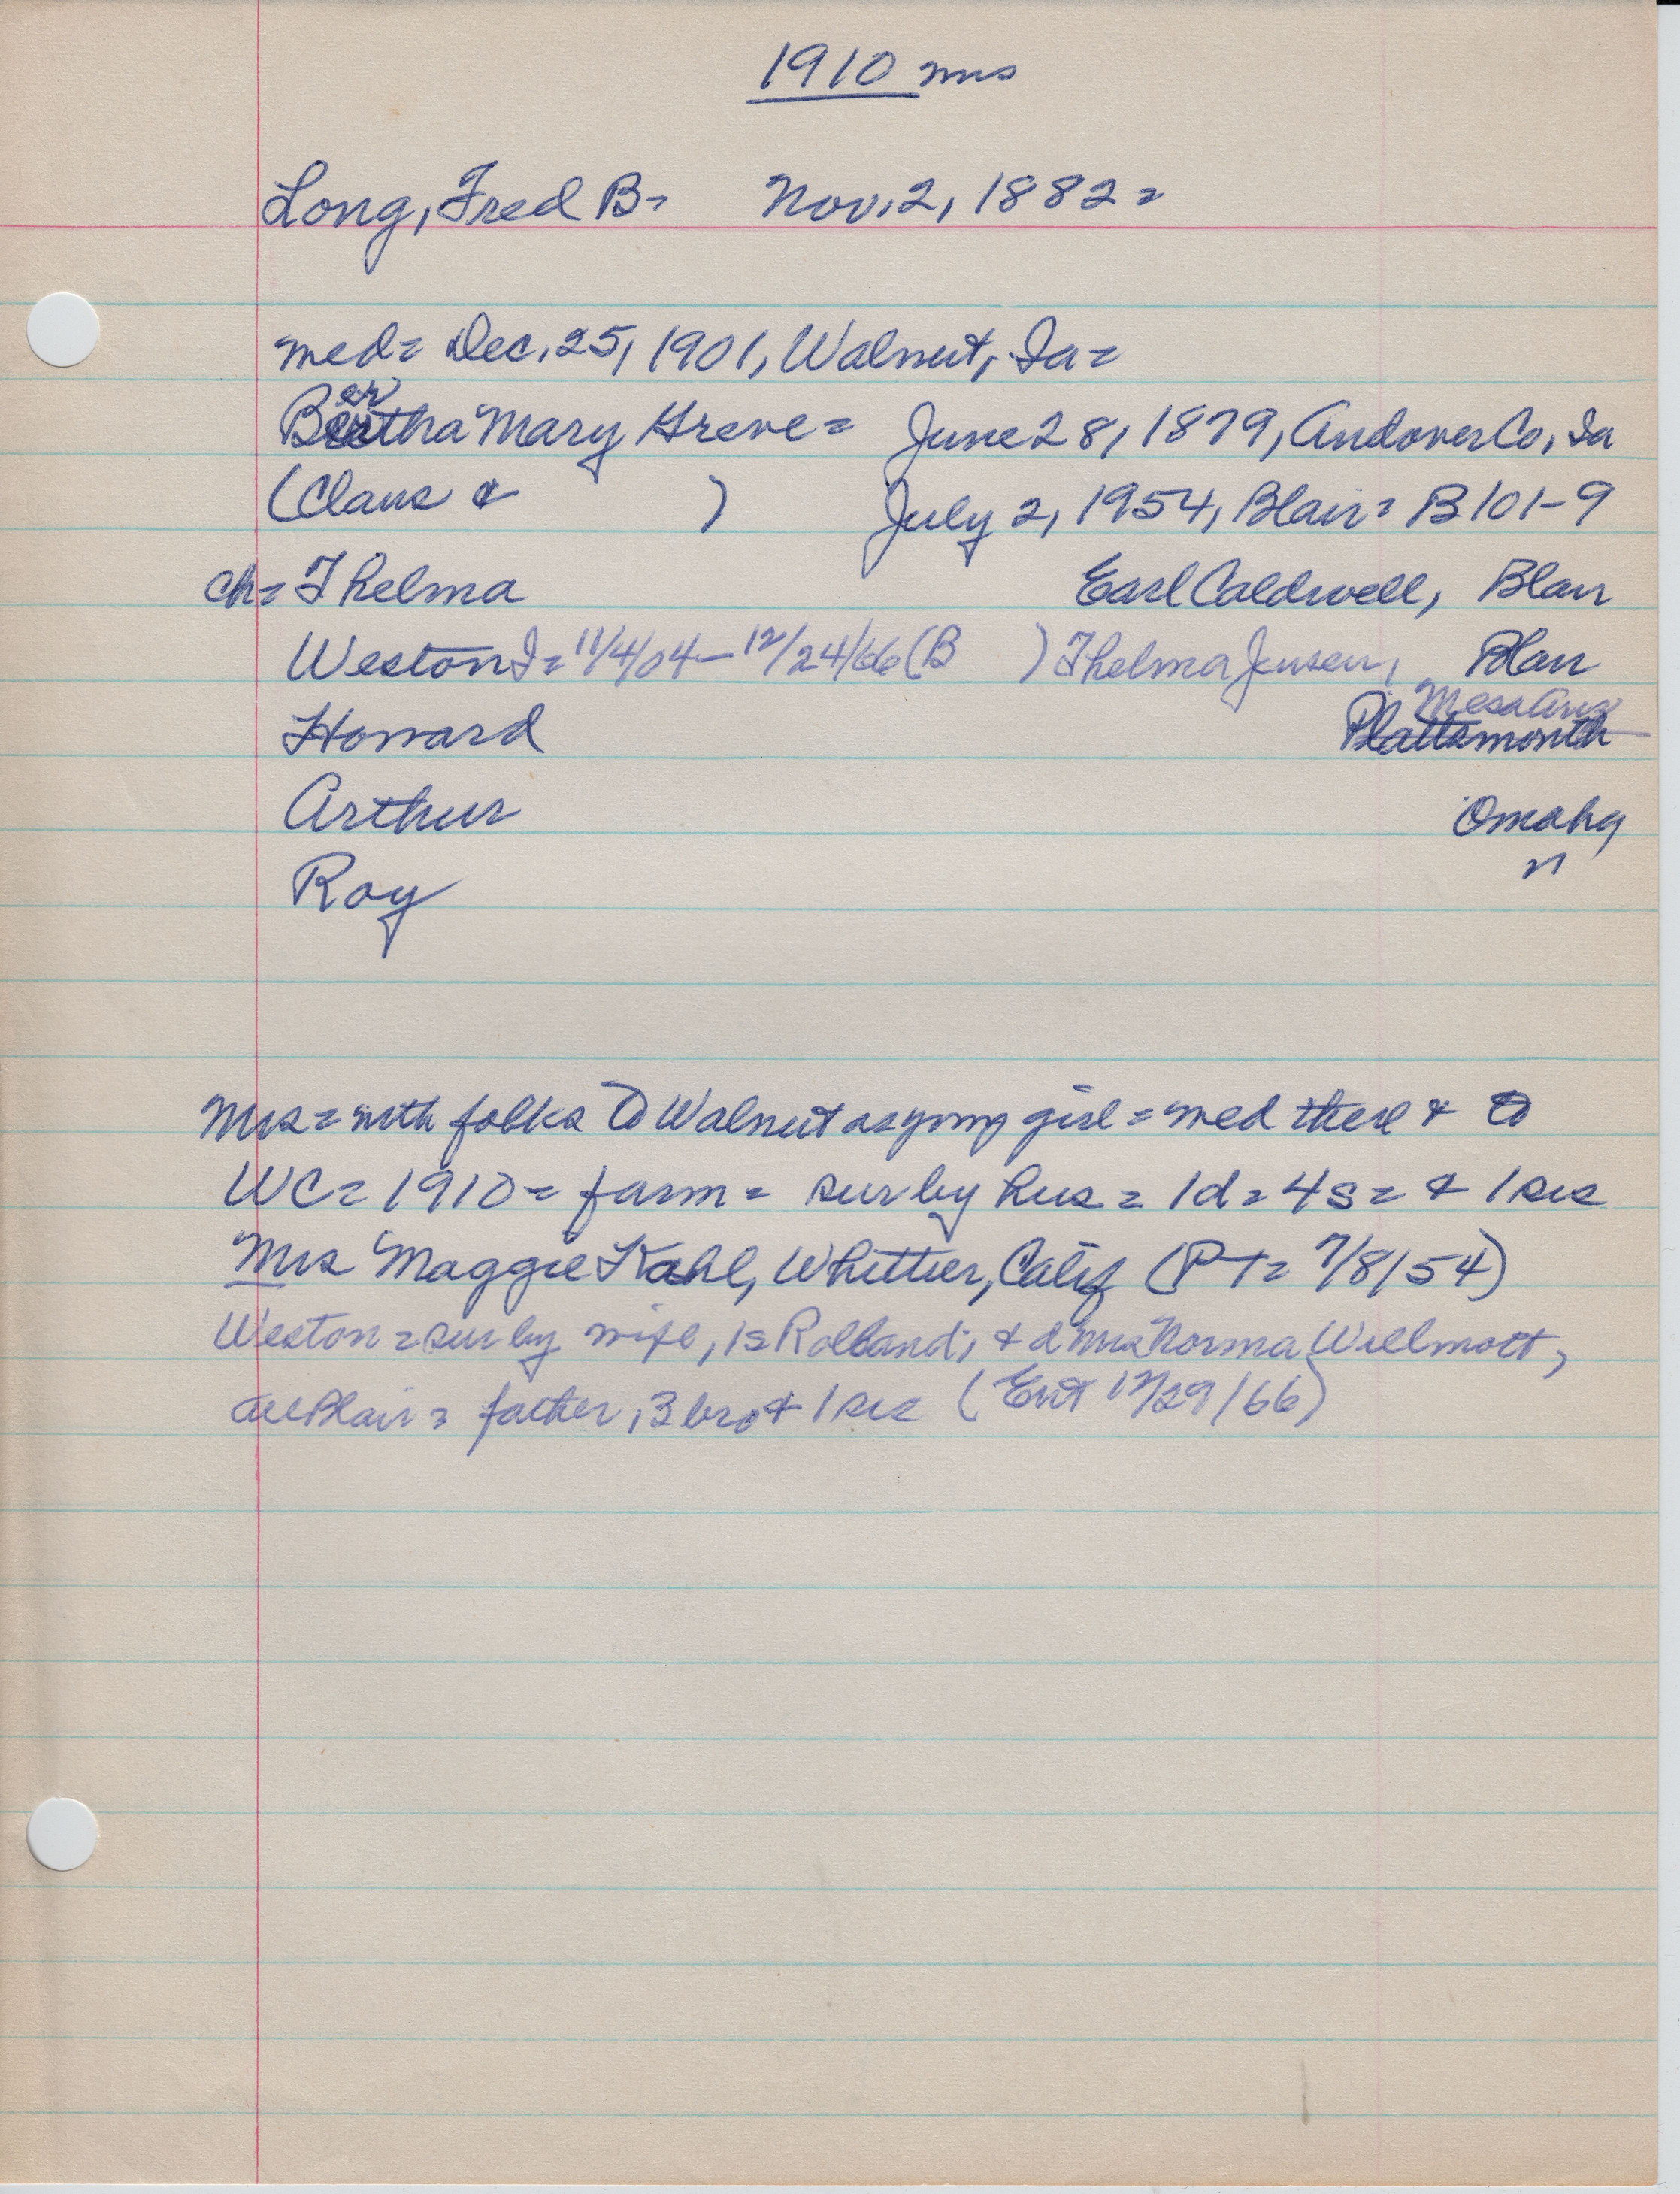 1910 mrs
Long, Fred B= Nov. 2, 1882=
med= Dec. 25, 1901, Walnut, Ia=
er
Bertha Mary Greve= June 28, 1879, Andover Co, Ia
(Claus & ) July 2, 1954, Blair= B101-9
ch= Thelma Earl Caldwell, Blair
Weston I= 11/4/04 - 12/24/66 (B ) Thelma Jensen, Blair
Mesa Ariz
Howard Plattsmouth
Arthur Omaha
Roy "
Mrs= with folks to Walnut as young girl= med there & to
WC= 1910= farm= sur by hus= 1d= 4s= & 1 sis
Mrs Maggie Kahl, Whittier, Calif (PT= 7/8/54)
Weston= sur by wife, 1s Rolland; & d Mrs Norma Willmott,
all Blair= father, 3 bro & 1 sis (Ent 12/29/66)